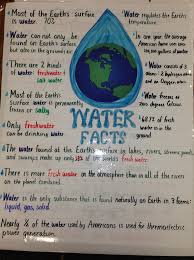 • Most of the Earth's surface is water. 70%
• Water can not only be found on Earth's surface but also in the ground or air.
• There are 2 kinds of water: freshwater & salt water
• Most of the Earth's surface water is permanently frozen or salty.
• Only freshwater can be drinking water
• Water regulates the Earth's temperature.
• In one year the average
water
• Water consists of 3 atoms: 2 hydrogen atoms and an Oxygen atom.
• Water freezes at zero degrees Celsius
• 68.7% of fresh water is in the ground
WATER
FACTS
• The water found at the Earth's surface in lakes, rivers, streams, ponds,
and swamps make up only of the world's fresh water.
• There is more fresh water in the atmosphere than in all of the rivers
on the planet combined.
• Water is the only substance that is found naturally on Earth in 3 forms:
liquid, gas, solid.
Nearly ½ of the water used by Americans is used for thermoelectric
power generation.